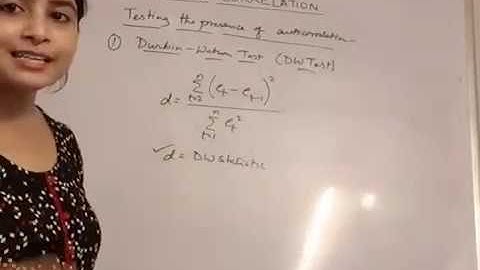 CORRELATION
Testing the presence of autocorrelation
① Durbin-Watson Test (DW Test)
d = \frac{\sum_{t=2}^{n} (e_t - e_{t-1})^2}{\sum_{t=1}^{n} e_t^2}
✓ d = DW statistic